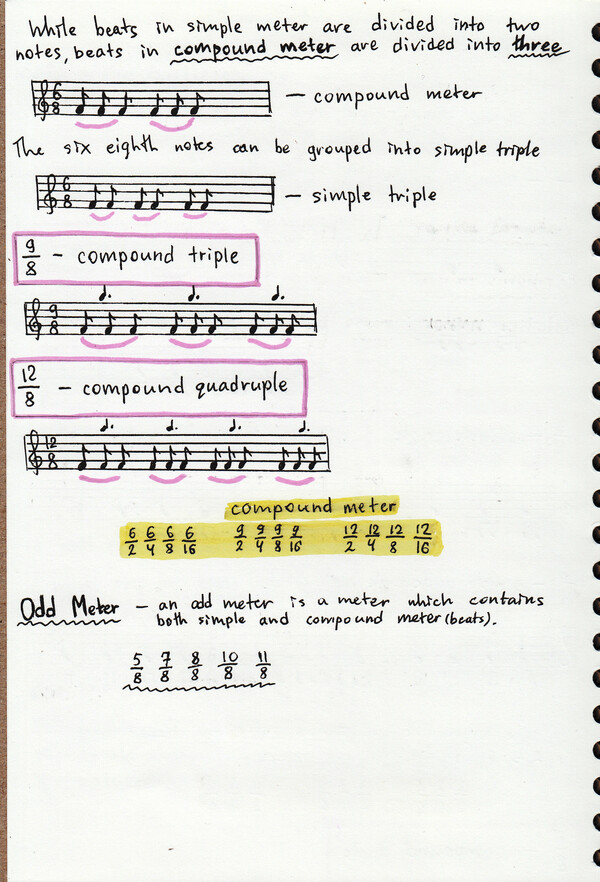 While beats in simple meter are divided into two
notes, beats in compound meter are divided into three
6/8 — compound meter
The six eighth notes can be grouped into simple triple
6/8 — simple triple
9/8 — compound triple
9/8
12/8 — compound quadruple
12/8
compound meter
6/2 6/4 6/8 6/16 9/2 9/4 9/8 9/16 12/2 12/4 12/8 12/16
Odd Meter — an odd meter is a meter which contains
both simple and compound meter (beats).
5/8 7/8 8/8 10/8 11/8